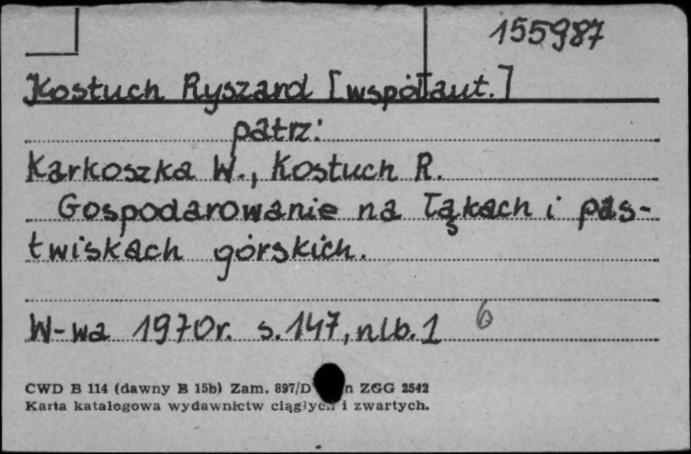 155987
Kostuch Ryszard [współaut.]
patrz:
Karkoszka W., Kostuch R.
Gospodarowanie na łąkach i pas-
twiskach górskich.
W-wa 1970r. s. 147, nlb. 1 6
CWD B 114 (dawny B 15b) Zam. 897/D n ZGG 2542
Karta katalogowa wydawnictw ciągłych i zwartych.